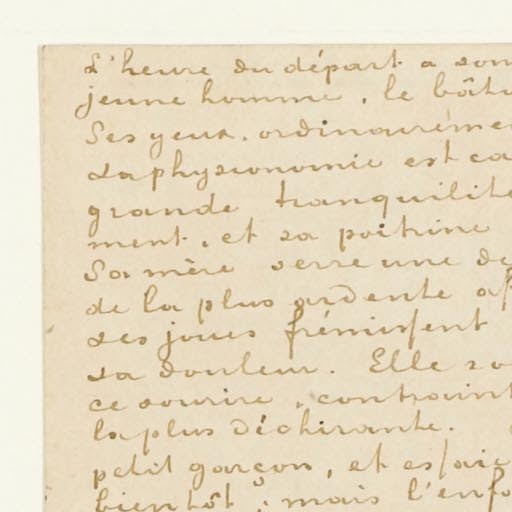 L'heure du départ a son
jeune homme, le bât
Ses yeux, ordinairéme
La physionomie est ca
grande tranquilité
ment, et sa poitrine
Sa mère serre une de
de la plus ardente af
ses joues frémissent
sa douleur. Elle so
ce sourire, contraint
la plus déchirante.
petit garçon, et essaie
bientôt; mais l'enfa